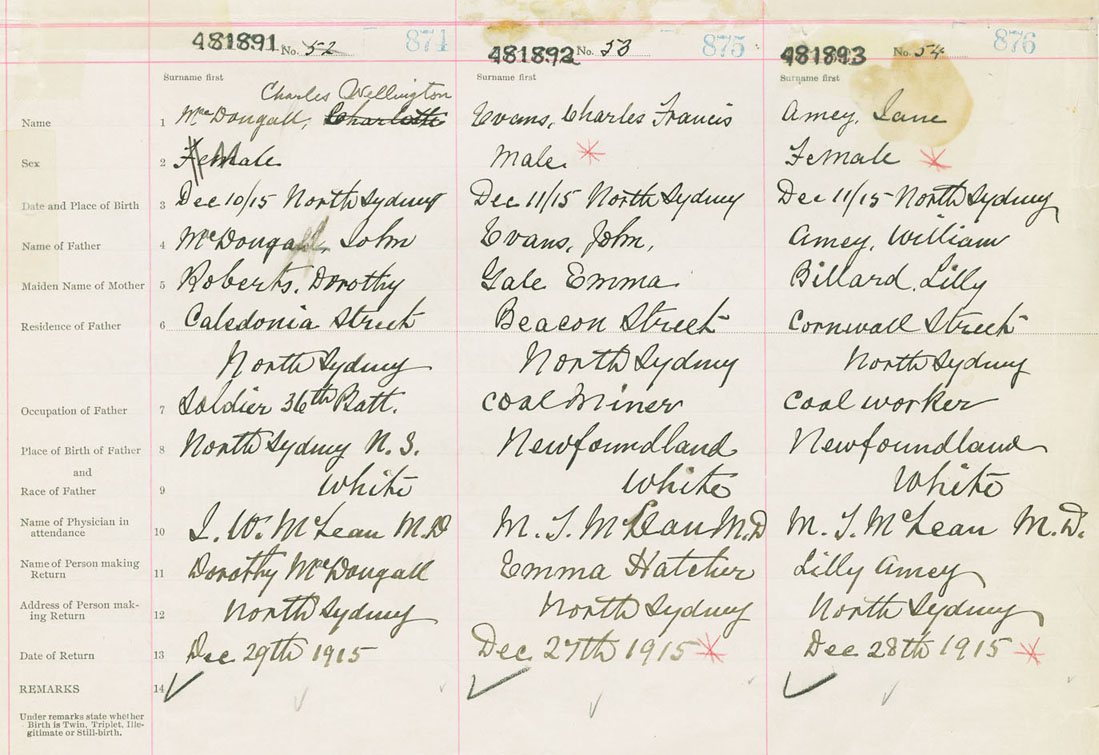 481891 No. 52 871 481892 No. 53 875 481893 No. 54 876
Surname first Surname first Surname first
Charles Wellington
Name 1 McDougall, Charlotte Evans, Charles Francis Amey, Jane
Sex 2 Female Male Female
Date and Place of Birth 3 Dec 10/15 North Sydney Dec 11/15 North Sydney Dec 11/15 North Sydney
Name of Father 4 McDougall, John Evans, John, Amey, William
Maiden Name of Mother 5 Roberts, Dorothy Gale Emma Billard, Lilly
Residence of Father 6 Caledonia Street Beacon Street Cornwall Street
North Sydney North Sydney North Sydney
Occupation of Father 7 Soldier 36th Batt. Coal Miner Coal worker
Place of Birth of Father 8 North Sydney N.S. Newfoundland Newfoundland
and
Race of Father 9 White White White
Name of Physician in
attendance 10 J. W. McLean M.D M. T. McLean M.D M. T. McLean M.D.
Name of Person making
Return 11 Dorothy McDougall Emma Hatcher Lilly Amey
Address of Person mak-
ing Return 12 North Sydney North Sydney North Sydney
Date of Return 13 Dec 29th 1915 Dec 27th 1915 Dec 28th 1915
REMARKS 14
Under remarks state whether
Birth is Twin, Triplet, Ille-
gitimate or Still-birth.